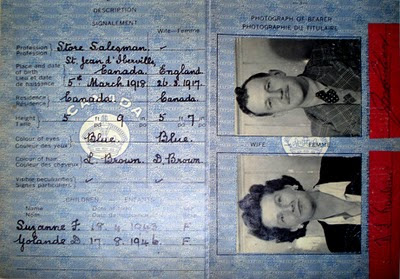 DESCRIPTION
SIGNALEMENT
Wife—Femme
Profession
Profession
Store Salesman.
Place and date
of birth
Lieu et date
de naissance
St Jean d'Iberville,
Canada. England.
5th March 1918 26.3.1917.
Residence
Résidence
Canada. Canada.
Height
5 ft 9 in 5 ft 7 in
CANADA
Colour of eyes
Couleur des yeux
Blue. Blue.
Colour of hair
Couleur des cheveux
L. Brown. D. Brown.
Visible peculiarities
Signes particuliers
CHILDREN ENFANTS
Name Date of birth Sex
Nom Date de naissance Sexe
Suzanne F. 18 4 1943 F
Yolande D. 17 8 1946 F
PHOTOGRAPH OF BEARER
PHOTOGRAPHIE DU TITULAIRE
WIFE FEMME